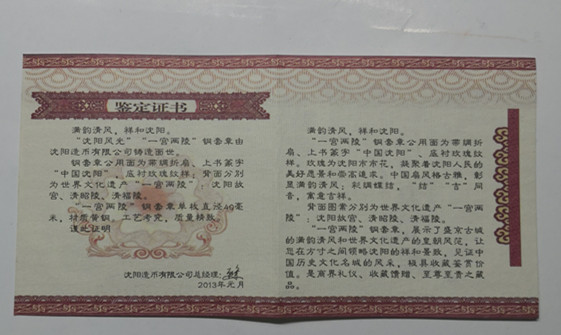 鉴定证书
满韵清风，祥和沈阳。
“沈阳风光”“一宫两陵”铜套章由
沈阳造币有限公司铸造面世。
铜套章公用面为带绸折扇、上书篆字
“中国沈阳”、底衬玫瑰纹样；背面分别
为世界文化遗产“一宫两陵”：沈阳故
宫、清昭陵、清福陵。
“一宫两陵”铜套章单枚直径40毫
米，材质黄铜，工艺考究，质量精致。
谨此证明
沈阳造币有限公司总经理：
2013年元月
满韵清风，祥和沈阳。
“一宫两陵”铜套章公用面为带绸折
扇、上书篆字“中国沈阳”、底衬玫瑰纹
样。玫瑰为沈阳市市花，凝聚着沈阳人民的
美好愿景和崇高追求。中国扇风格古雅，彰
显满韵清风；彩绸蝶结，“结”“吉”同
音，寓意吉祥。
背面图案分别为世界文化遗产“一宫两
陵”：沈阳故宫、清昭陵、清福陵。
“一宫两陵”铜套章，展示了盛京古城
的满韵清风和世界文化遗产的皇朝风范，让
您在方寸之间领略沈阳的祥和景致，见证中
国历史文化名城的风采，极具收藏鉴赏价
值。是商界礼仪、收藏馈赠、至尊至贵之藏
品。